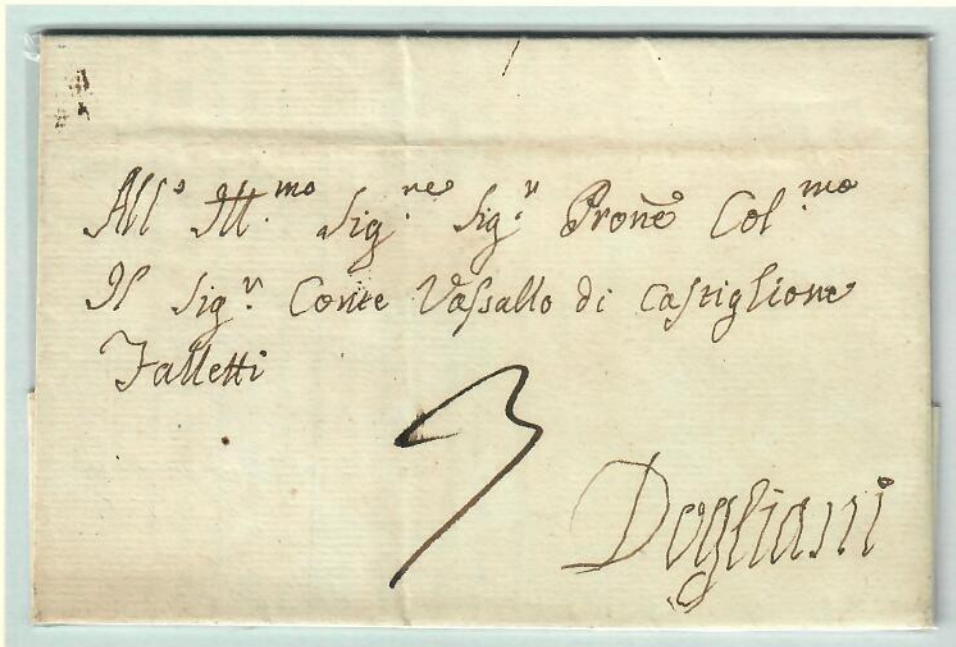 All'o Ill.mo Sig.re Sig.r Prone Col.mo
Il Sig.r Conte Vassallo di Castiglione
Falletti
3
Dogliani